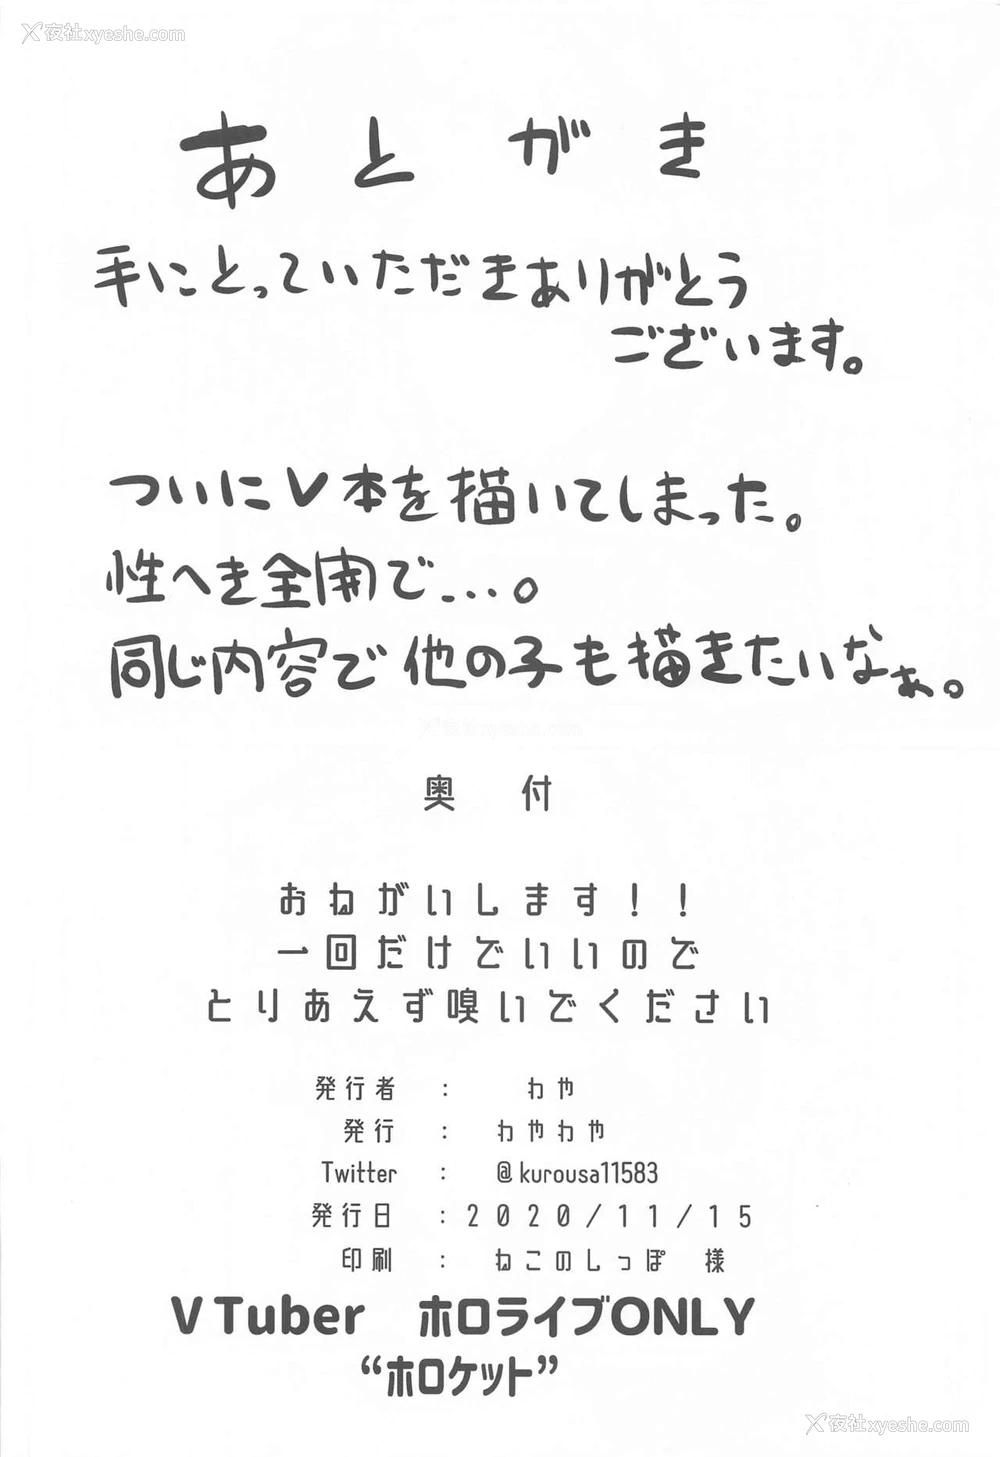 夜社xyeshe.com
夜社xyeshe.com
あとがき
手にとっていただきありがとう
ございます。
ついにV本を描いてしまった。
性へき全開で...。
同じ内容で他の子も描きたいなぁ。
夜社xyeshe.com
奥付
おねがいします!!
一回だけでいいので
とりあえず嗅いでください
発行者 : わや
発行 : わやわや
Twitter : @kurousa11583
発行日 : 2020/11/15
印刷 : ねこのしっぽ 様
VTuber ホロライブONLY
“ホロケット”
夜社xyeshe.com